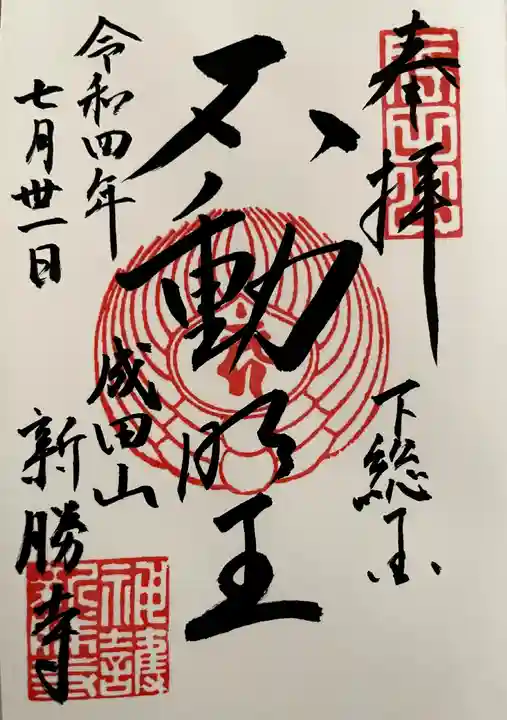 奉拝
下総国
不動明王
成田山
新勝寺
令和四年
七月卅一日